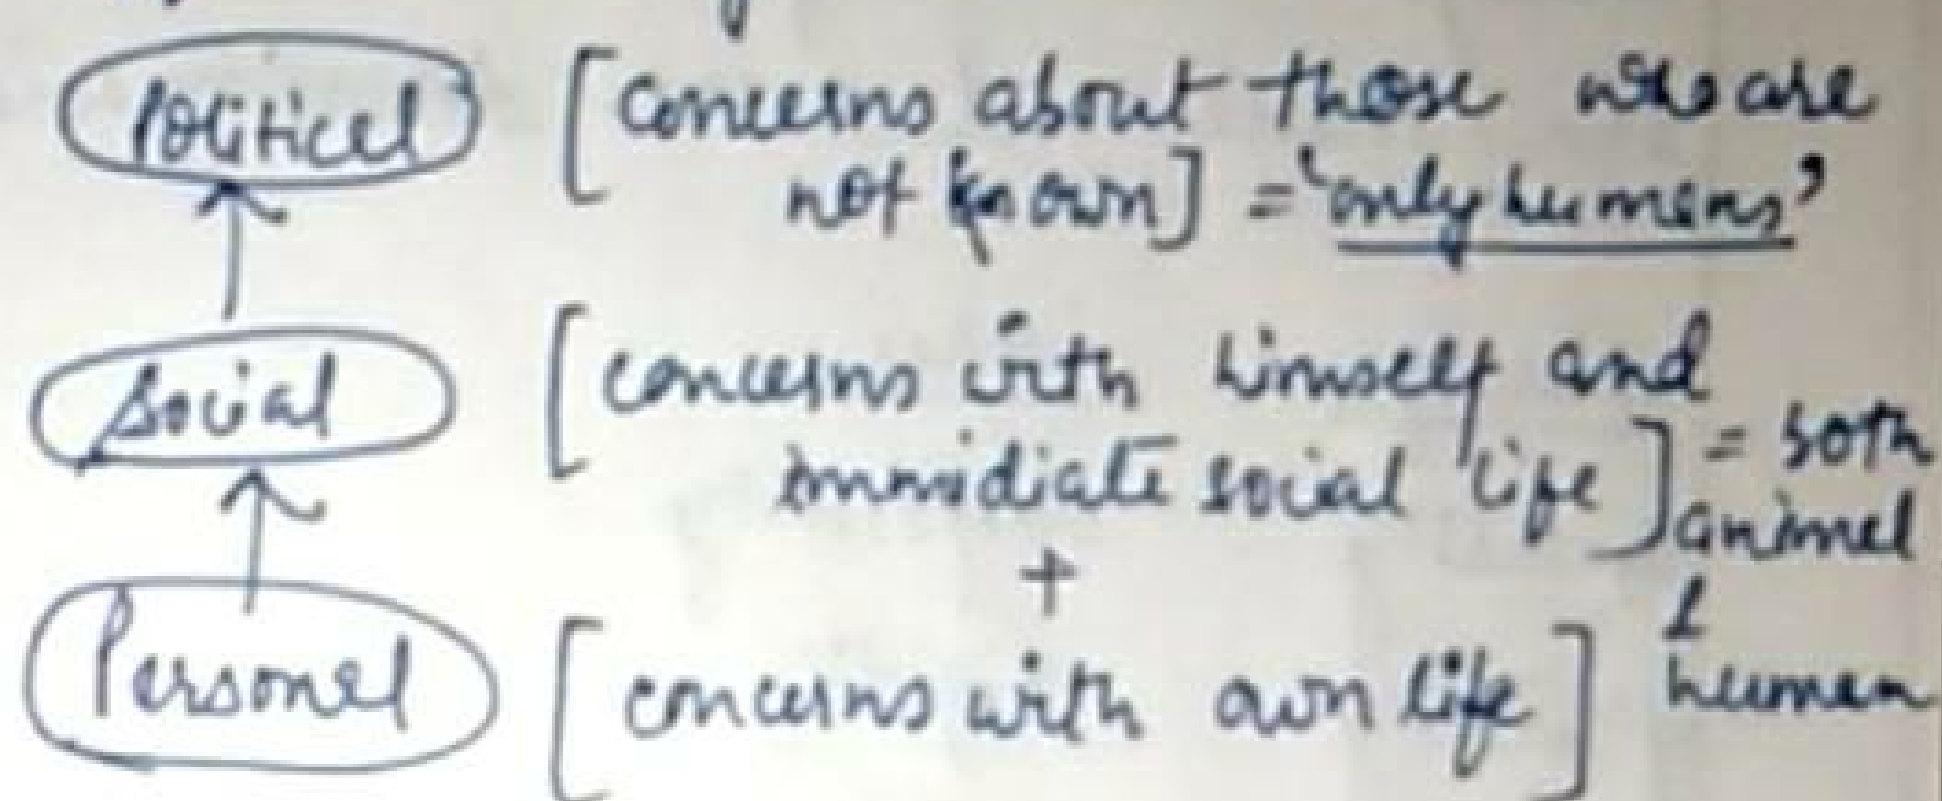 Political [concerns about those who are
not known] = 'only humans'
Social [concerns with himself and
immidiate social life] = both
animal
+ &
Personal [concerns with own life] human